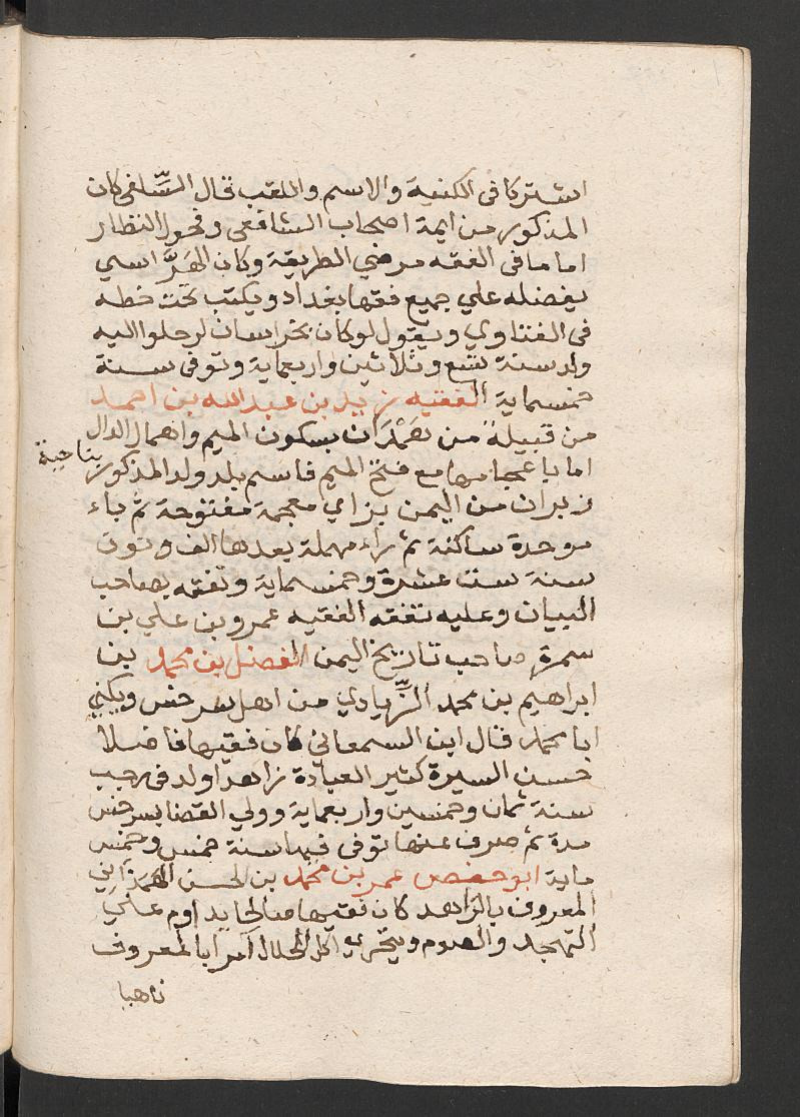 اشتركا فى الكنية والاسم واللقب قال السِّلفى كان
المذكور من ايمة اصحاب الشافعى وفحول النظار
اماما فى الفقه مرضي الطريقة وكان الهَرَّاسي
يفضله علي جميع فقها بغداد ويكتب تحت خطه
فى الفتاوي ويقول لو كان بخراسان لرحلوا اليه
ولد سنة تسع وثلاثين واربعماية وتوفى سنة
خمسماية الفقيه زيد بن عبد الله بن احمد
من قبيلة من هَمْدَان بسكون الميم واهمال الدال
اما باعجامها مع فتح الميم فاسم بلد ولد المذكور بناحية
زبران من اليمن بزاي معجمة مفتوحة ثم باء
موحدة ساكنة ثم راء مهملة بعدها الف ونون
سنة ست عشرة وخمسماية وتفقه بصاحب
البيان وعليه تفقه الفقيه عمرو بن علي بن
سمرة صاحب تاريخ اليمن الفضل بن محمد بن
ابراهيم بن محمد الزِّيادي من اهل سرخس ويكني
ابا محمد قال ابن السمعاني كان فقيها فاضلا
حسن السيرة كثير العبادة زاهدا ولد فى رجب
سنة ثمان وخمسين واربعماية وولي القضا بسرخس
مدة ثم صرف عنها توفى فيها سنة خمس وخمس
ماية ابو حفص عمر بن محمد بن الحسن الهَمَذَاني
المعروف بالزاهد كان فقيها صالحا يداوم علي
التهجد والصوم ويتحري اكل الحلال آمرا بالمعروف
ناهيا